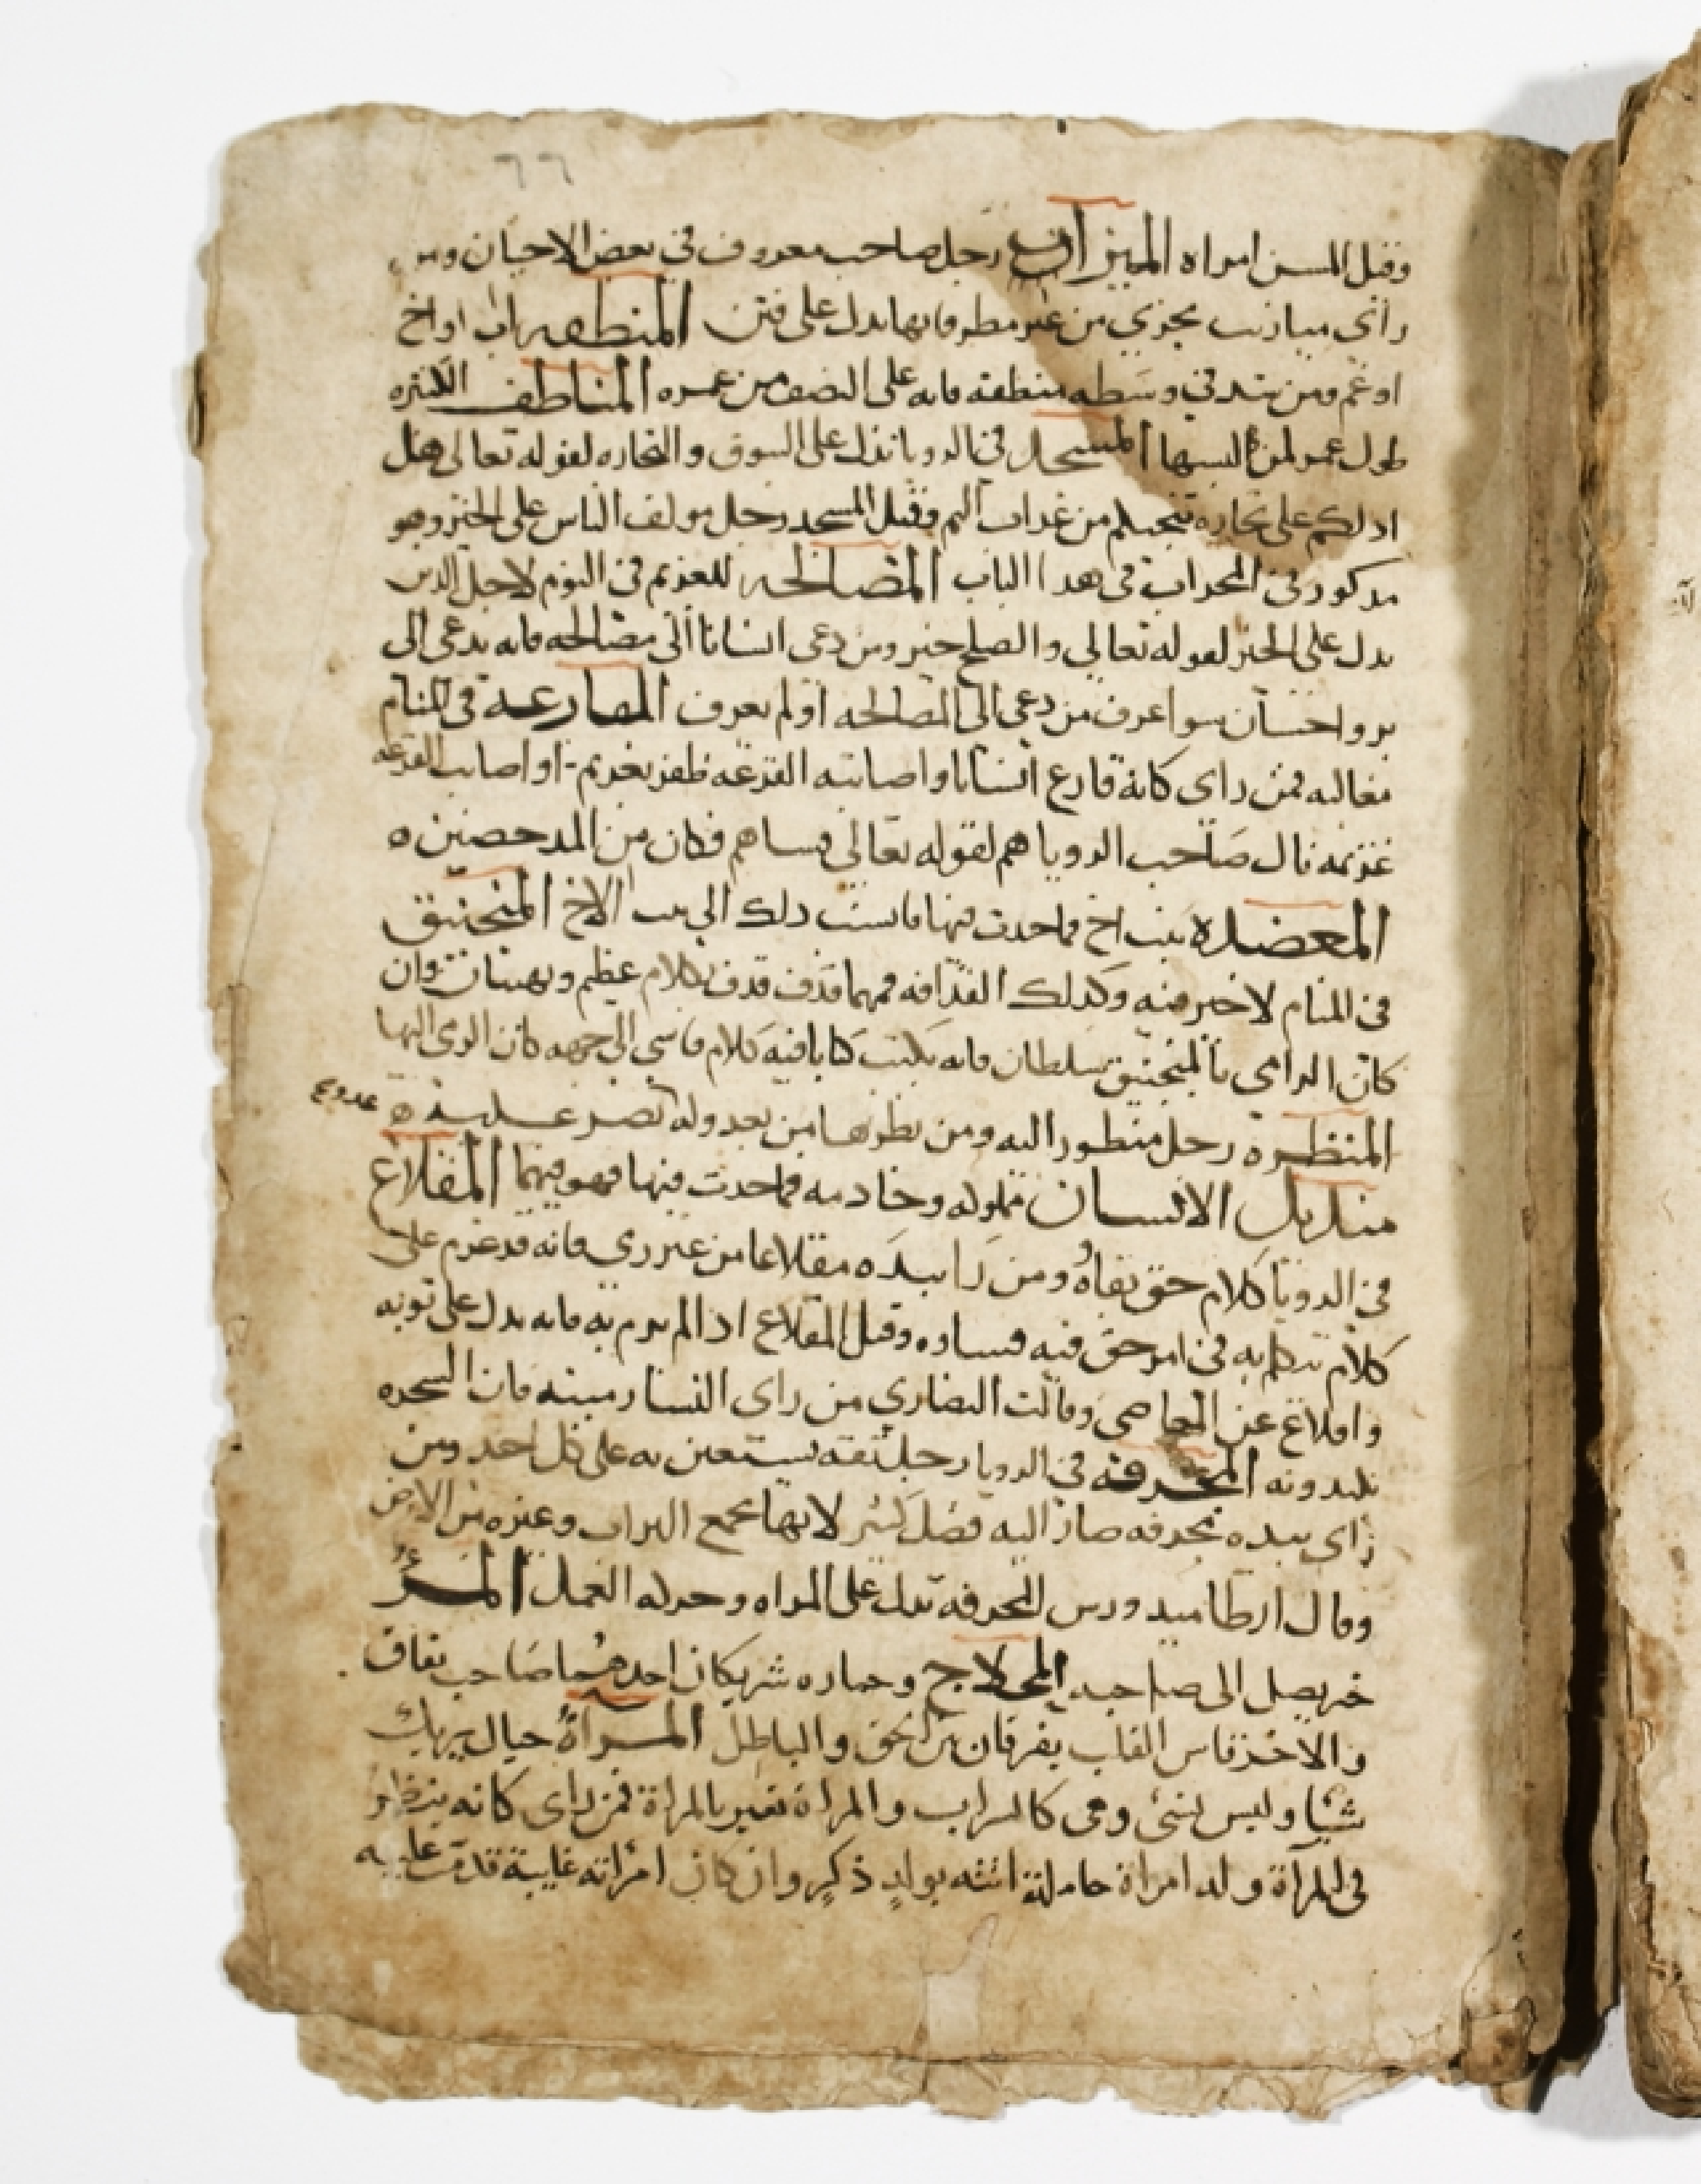 ٦٦
وقيل المسن امراه الميزاب رجل صاحب معروف في بعض الاحيان ومن
راى ميازيب تجري من غير مطر فانها تدل على فتن المنطقه اب او اخ
او عم ومن شد في وسطه منطقه فانه على النصف من عمره المناطق الكثره
طول عمر لمن لبسها المسجد في الرويا تدل على السوق والتجاره لقوله تعالى هل
ادلكم على تجاره تنجيكم من عذاب اليم وقيل المسجد رجل مولف الناس على الخير وهو
مذكور في المحراب في هذا الباب المصالحه للغريم في النوم لاجل الدين
تدل على الخير لقوله تعالي والصلح خير ومن دعى انسانا الى مصالحه فانه يدعى الى
بر واحسان سوا عرف من دعى الى المصالحه او لم يعرف المقارعه في المنام
مغالبه فمن راى كانه قارع انسانا واصابته القرعه ظفر بغريم او اصابت القرعه
غريمه نال صاحب الرويا هم لقوله تعالى فساهم فكان من المدحضين ه
المعضده بنت اخ فما حدث فيها فانسب ذلك الى بنت الاخ المنجنيق
في المنام لا خير فيه وكذلك القذافه فمهما قذف قذف بكلام عظيم وبهتان وان
كان الرامي بالمنجنيق سلطان فانه يكتب كتابا فيه كلام قاسي الى جهه كان الرمي اليها
المنظره رجل منظور اليه ومن نظرها من بعد وله نصر على عدوه
منديل الانسان مملوله وخادمه فما حدث فيها فهو فيهما المقلاع
في الرويا كلام حق نفاهُ ومن را بيده مقلاعا من غير رمي فانه قد عزم على
كلام تتكلم به في امر حق فيه فساده وقيل المقلاع اذا لم يرم به فانه يدل على توبه
واقلاع عن المعاصي وقالت النصاري من راى فان السحره
يكيدونه المجرفه في الرويا رجل ثقه يستعين به على كل احد ومن
راى بيده مجرفه صار اليه فضل كثير لانها تجمع التراب وغيره من الارض
وقال ارطاميدورس المجرفه تدل على المراه وحركه العمل
خير يصل الى صاحبه المحلاج وحماره شريكان احدهما صاحب نفاق
والاخر قاس القلب يفرقان بين الحق والباطل المراةُ خيال يريك
شيا وليس بشي وهي كالسراب والمراة تعبر بالمراة فمن راى كانه ينظر
في المراة وله امراة حاملة اتته بولدٍ ذكرٍ وان كان امراته غايبة قدمت عليه